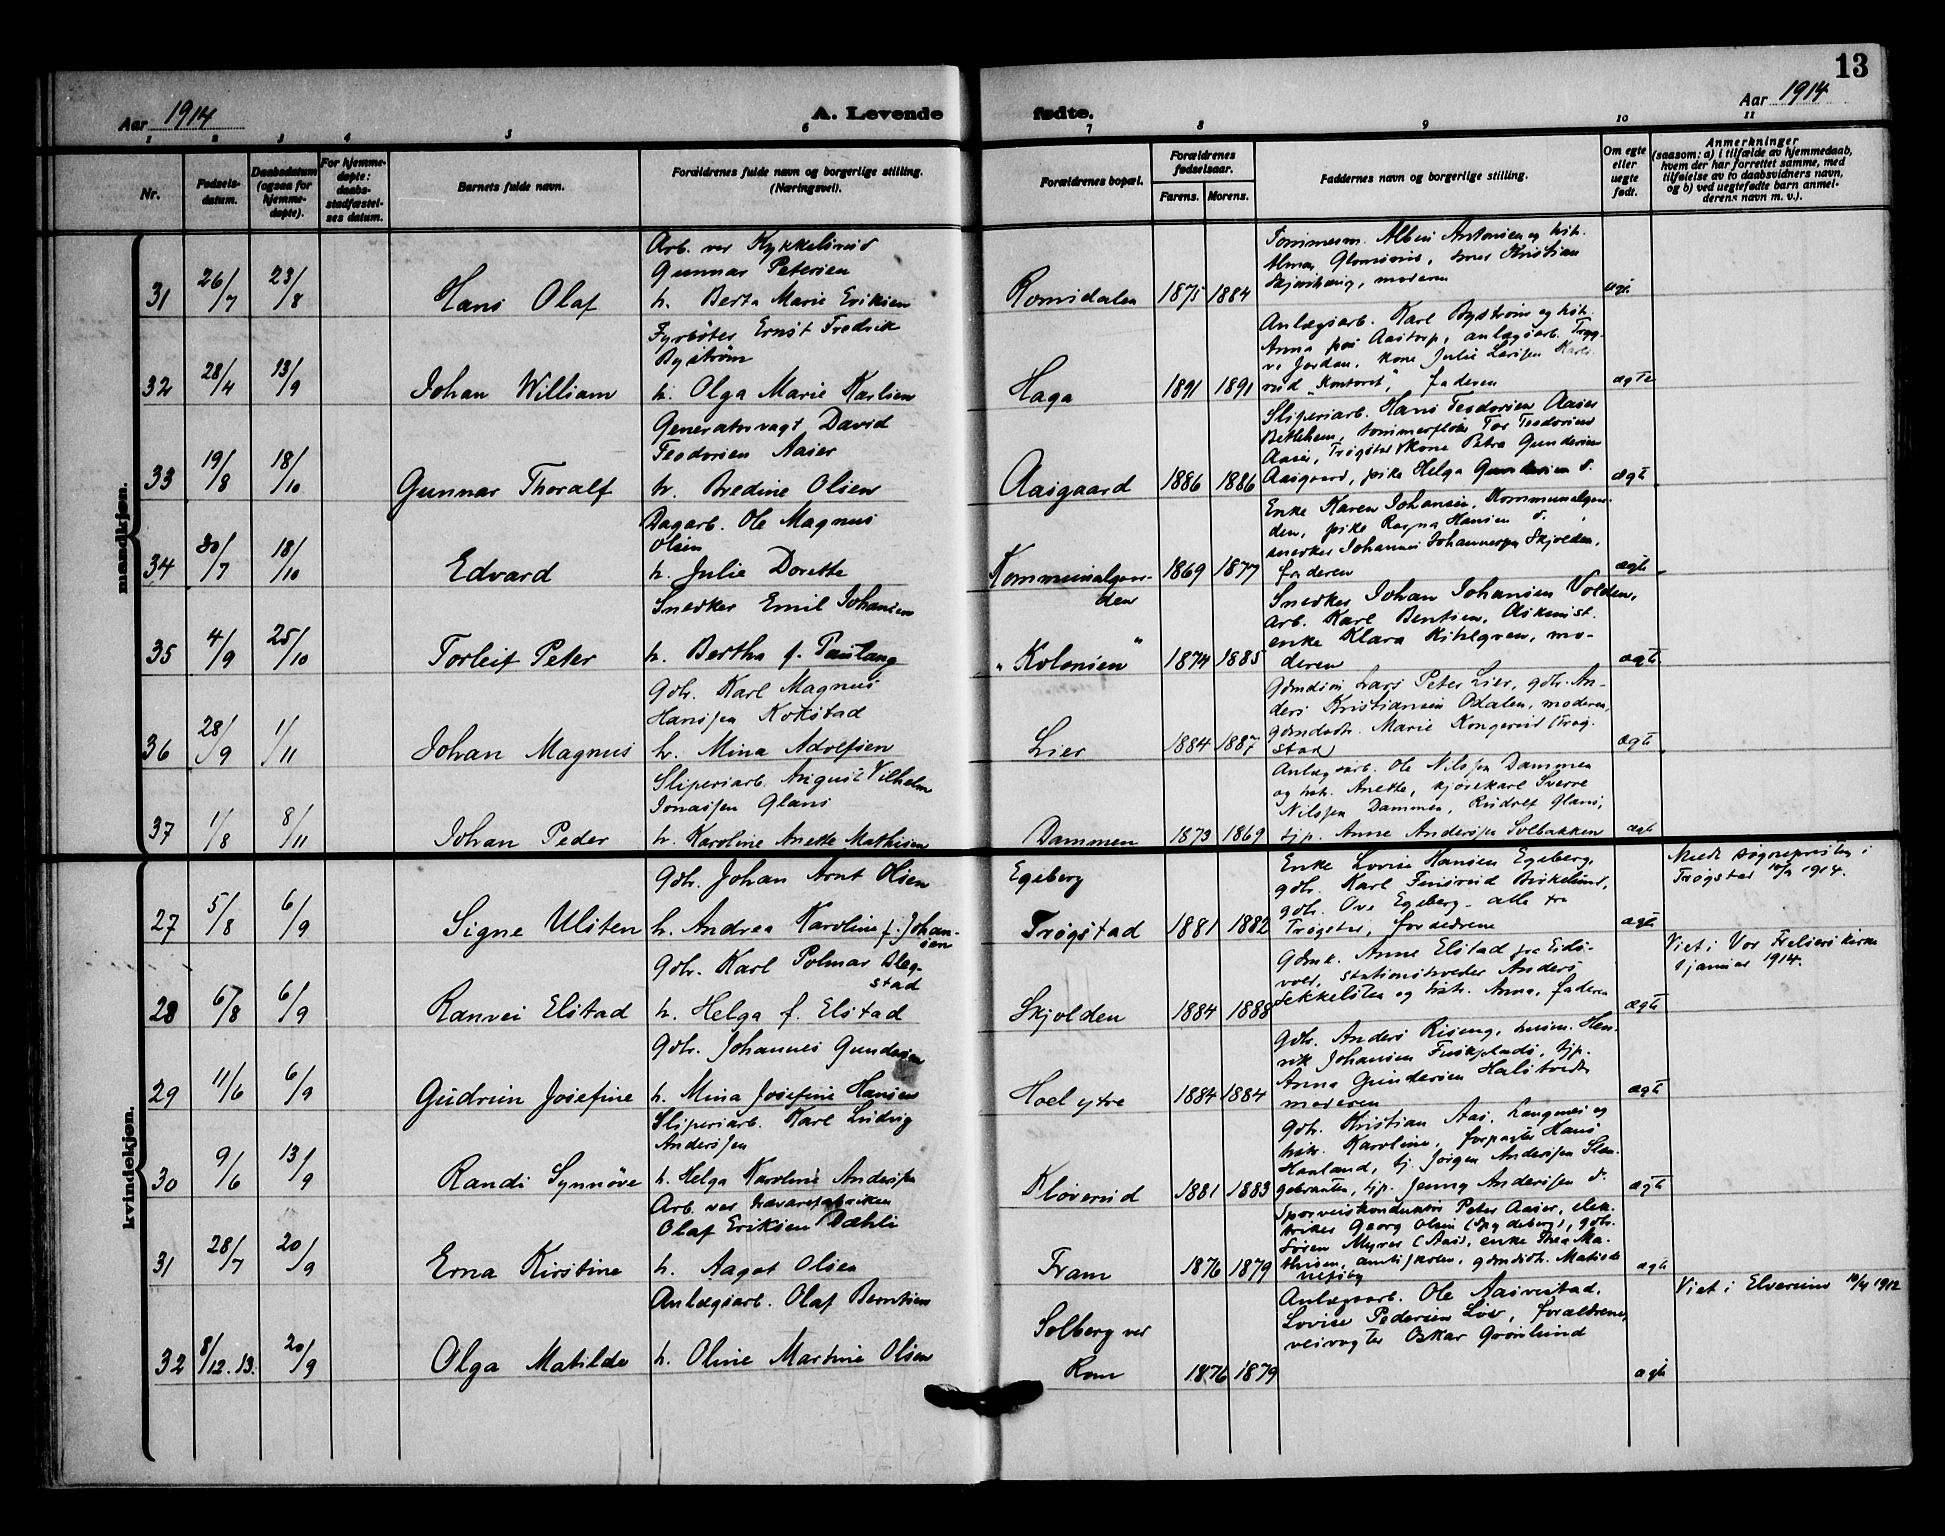 13
Aar 1914
A. Levende fødte.
Aar 1914
1 2 3 4 5 6 7 8 9 10 11
Nr.
Fødsels-
datum.
Daabsdatum
(ogsaa for
hjemme-
døpte).
For hjemme-
døpte:
daabs-
stadfæstel-
ses datum.
Barnets fulde navn.
Forældrenes fulde navn og borgerlige stilling.
(Næringsvei).
Forældrenes bopæl.
Forældrenes
fødselsaar.
Farens. Morens.
Faddernes navn og borgerlige stilling.
Om egte
eller
uegte
født.
Anmerkninger
(saasom: a) i tilfælde av hjemmedaab,
hvem der har forrettet samme, med
tilføielse av to daabsvidners navn,
og b) ved uegtefødte barn anmel-
derens navn m. v.).
mandkjøn.
31 26/7 23/8 Hans Olaf
Arb. ver Kykkelsrud
Gunnar Petersen
h. Berta Marie Eriksen
Romsdalen 1875 1884
Tømmerm. Albin Antonsen og hstr.
Kristian
moderen
32 28/4 13/9 Johan William
Fyrbøter Ernst Fredrik
Byström
h. Olga Marie Karlsen
Haga 1891 1891
Anlægsarb. Karl Byström og hstr.
Anna fra Aastorp, anlægsarb. Tryg-
ve Jordan, kone Julie Larsen Karls-
rud "Kontoret", faderen
ægte
33 19/8 18/10 Gunnar Thoralf
Generatorvagt David
Teodorsen Aaser
h. Bredine Olsen
Aasgaard 1886 1886
Sliperiarb. Hans Teodorsen Aaser
Betlehem, tømmerfløter Tor Teodorsen
Aaser, Trøgstad, kone Petra Gundersen
Aasgaard, pike Helga Gundersen s.
ægt.
34 30/7 18/10 Edvard
Dagarb. Ole Magnus
Olsen
h. Julie Dorette
Kommunalgaar-
den
1869 1877
Enke Karen Johansen, Kommunalgaar-
den, pike Ragna Hansen s.
snedker Johannes Johannessen Skjolden,
faderen
ægte
35 4/9 25/10 Torleif Peter
Snedker Emil Johansen
h. Bertha f. Paulang
"Kolonien" 1874 1885
Snedker Johan Johansen Volden,
arb. Karl Bentsen, Askimst.
enke Klara mo-
deren
ægt.
36 28/9 1/11 Johan Magnus
Gdbr. Karl Magnus
Hansen Kokstad
h. Mina Adolfsen
Lier 1884 1887
Gdmdsøn Lars Peter Lier, gdbr. An-
ders Kristiansen Odalen, moderen,
gdmdsdtr. Marie Kongerud (Trøg-
stad)
ægt.
37 1/8 8/11 Johan Peder
Sliperiarb. August Vilhelm
Jonassen Glans
h. Karoline Anette Mathisen
Dammen 1873 1869
Anlægsarb. Ole Nilssen Dammen
og hstr. Anette, kjørekarl Sverre
Nilssen Dammen, Rudolf Glans,
tjp. Anne Andersen Solbakken
ægt.
kvindekjøn.
27 5/8 6/9 Signe Ulsten
Gdbr. Johan Arnt Olsen
h. Andrea Karoline f. Johan-
sen
Egeberg
Trøgstad 1881 1882
Enke Lovise Hansen Egeberg,
gdbr. Karl Birkelund,
gdbr. Ove Egeberg - alle fra
Trøgstad, forældrene
ægte
Meldt sognepresten i
Trøgstad 10/9 1914.
28 6/8 6/9 Ranvei Elstad
Gdbr. Karl Polmar Sleg-
stad
h. Helga f. Elstad
Skjolden 1884 1888
Gdmk. Anne Elstad fra Eids-
vold, Anders
Sekkelsten og hstr. Anna, faderen
ægte
Viet i Vor Frelsers kirke
januar 1914.
29 11/6 6/9 Gudrun Josefine
Gdbr. Johannes Gundersen
h. Mina Josefine Hansen
Hoel ytre 1884 1884
Gdbr. Anders Riseng, husm. Hen-
rik Johansen tjp.
Anna Gundersen
moderen
ægt.
30 9/6 13/9 Randi Synnöve
Sliperiarb. Karl Ludvig
Andersen
h. Helga Karoline Andersen
Kløverud 1881 1883
Gdbr. Kristian Aas, Langnes og
hstr. Karoline, forpagter Hans
Haaland, tj. Jørgen Andersen Slan-
tjp. Jenny Andersen s.
ægte
31 28/7 20/9 Erna Kirstine
Arb. ver havarefabriken
Olaf Eriksen Dæhli
h. Aagot Olsen
Fram 1876 1879
Sporveiskonduktør Peter Aaser, elek-
triker Georg Olsen (Spydeberg), gdbr.
Søren Myrer (Aas), enke Thea Ma-
thisen, amtsskolen, gdmdsdtr. Matilde
ægte
32 8/12.13. 20/9 Olga Matilde
Anlægsarb. Olaf Berntsen
h. Oline Martine Olsen
Solberg ver
Rom
1876 1879
Anlægsarb. Ole Aasvestad,
Lovise Pedersen forældrene,
veivogter Oskar Grønlund
ægte
Viet i Elverum 10/4 1912